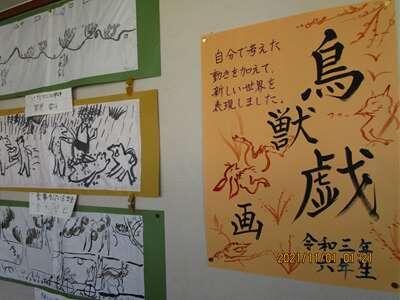 鳥獣戯画
自分で考えた
動きを加えて、
新しい世界を
表現しました。
令和三年
六年生
2021/11/01 01:21